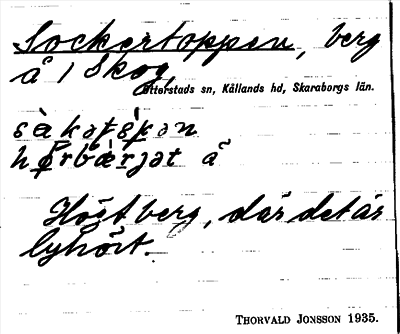 Sockertoppen, berg
å 1 Skog
Otterstads sn, Kållands hd, Skaraborgs län.
Högt berg, där det är
lyhört.
THORVALD JONSSON 1935.